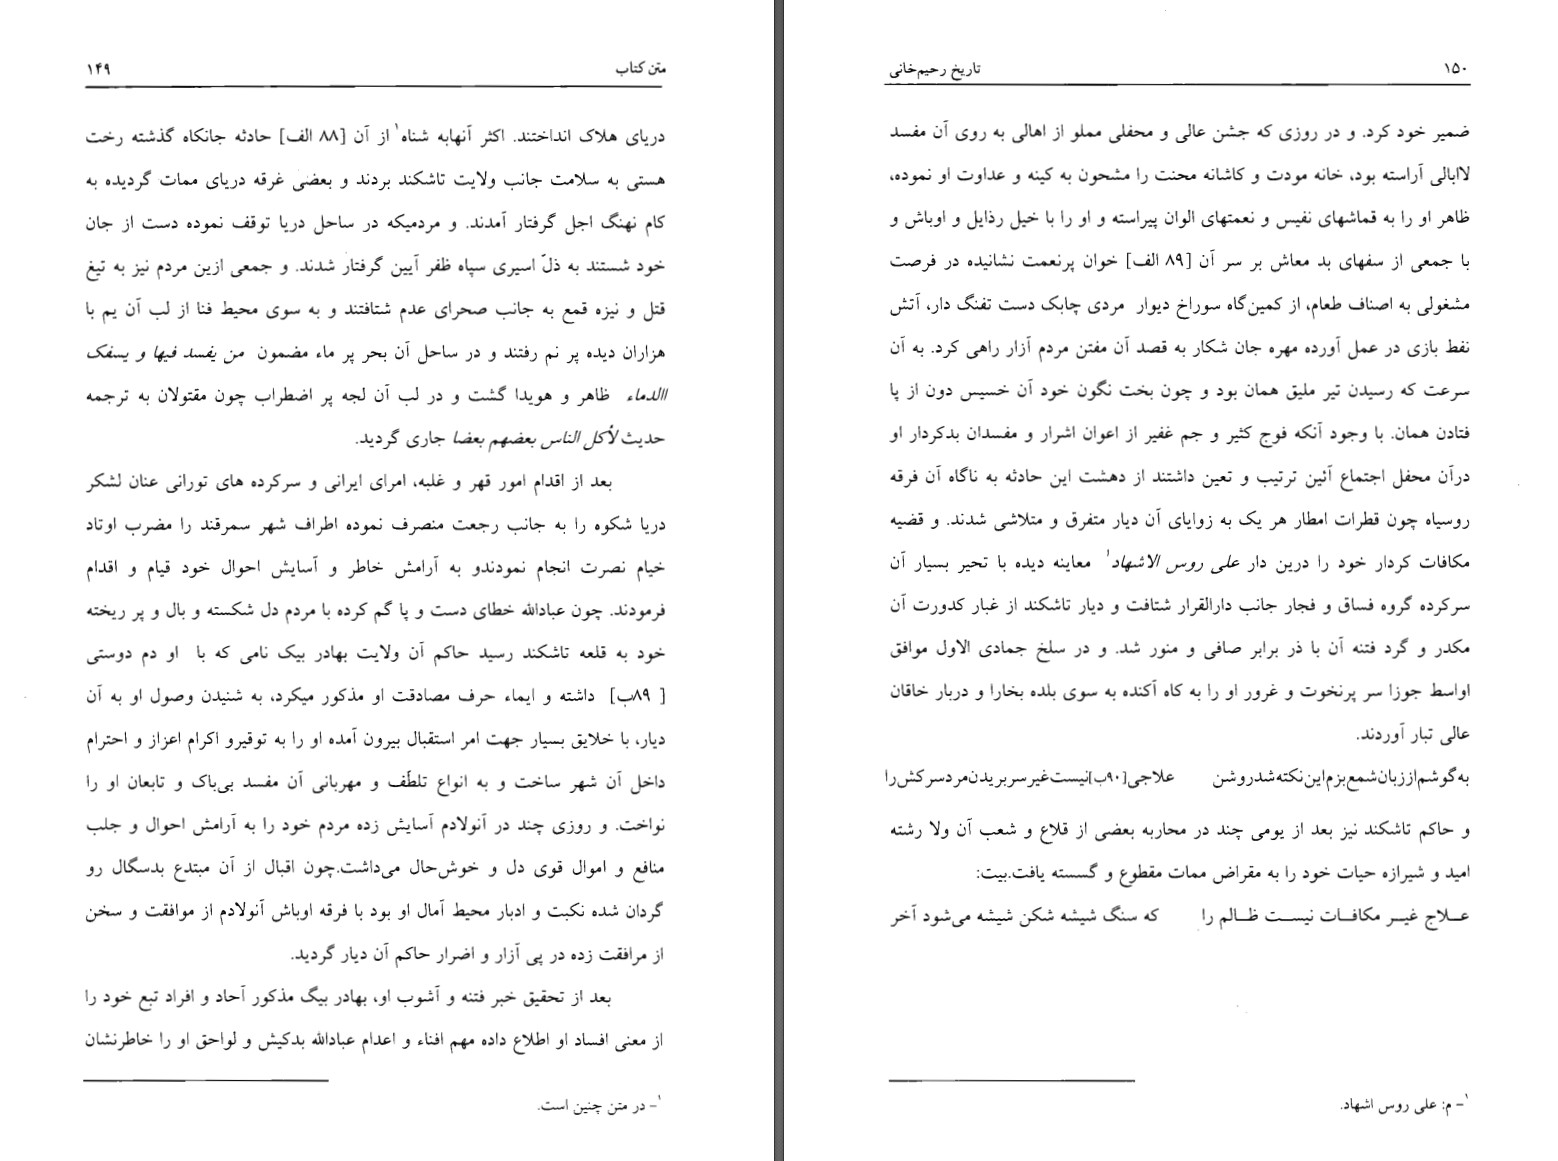 متن کتاب ۱۴۹
دریای هلاک انداختند. اکثر آنهابه شناه۱ از آن [۸۸ الف] حادثه جانکاه گذشته رخت
هستی به سلامت جانب ولایت تاشکند بردند و بعضی غرقه دریای ممات گردیده به
کام نهنگ اجل گرفتار آمدند. و مردمیکه در ساحل دریا توقف نموده دست از جان
خود شستند به ذلّ اسیری سپاه ظفر آیین گرفتار شدند. و جمعی ازین مردم نیز به تیغ
قتل و نیزه قمع به جانب صحرای عدم شتافتند و به سوی محیط فنا از لب آن یم با
هزاران دیده پر نم رفتند و در ساحل آن بحر پر ماء مضمون من یفسد فیها و یسفک
االدماء ظاهر و هویدا گشت و در لب آن لجه پر اضطراب چون مقتولان به ترجمه
حدیث لأکل الناس بعضهم بعضا جاری گردید.
بعد از اقدام امور قهر و غلبه، امرای ایرانی و سرکرده های تورانی عنان لشکر
دریا شکوه را به جانب رجعت منصرف نموده اطراف شهر سمرقند را مضرب اوتاد
خیام نصرت انجام نمودندو به آرامش خاطر و آسایش احوال خود قیام و اقدام
فرمودند. چون عبادالله خطای دست و پا گم کرده با مردم دل شکسته و بال و پر ریخته
خود به قلعه تاشکند رسید حاکم آن ولایت بهادر بیک نامی که با او دم دوستی
[ ۸۹ب] داشته و ایماء حرف مصادقت او مذکور میکرد، به شنیدن وصول او به آن
دیار، با خلایق بسیار جهت امر استقبال بیرون آمده او را به توقیرو اکرام اعزاز و احترام
داخل آن شهر ساخت و به انواع تلطّف و مهربانی آن مفسد بی‌باک و تابعان او را
نواخت. و روزی چند در آنولادم آسایش زده مردم خود را به آرامش احوال و جلب
منافع و اموال قوی دل و خوش‌حال می‌داشت.چون اقبال از آن مبتدع بدسگال رو
گردان شده نکبت و ادبار محیط آمال او بود با فرقه اوباش آنولادم از موافقت و سخن
از مرافقت زده در پی آزار و اضرار حاکم آن دیار گردید.
بعد از تحقیق خبر فتنه و آشوب او، بهادر بیگ مذکور آحاد و افراد تبع خود را
از معنی افساد او اطلاع داده مهم افناء و اعدام عبادالله بدکیش و لواحق او را خاطرنشان
۱- در متن چنین است.
۱۵۰ تاریخ رحیم‌خانی
ضمیر خود کرد. و در روزی که جشن عالی و محفلی مملو از اهالی به روی آن مفسد
لاابالی آراسته بود، خانه مودت و کاشانه محنت را مشحون به کینه و عداوت او نموده،
ظاهر او را به قماشهای نفیس و نعمتهای الوان پیراسته و او را با خیل رذایل و اوباش و
با جمعی از سفهای بد معاش بر سر آن [۸۹ الف] خوان پرنعمت نشانیده در فرصت
مشغولی به اصناف طعام، از کمین‌گاه سوراخ دیوار مردی چابک دست تفنگ دار، آتش
نفط بازی در عمل آورده مهره جان شکار به قصد آن مفتن مردم آزار راهی کرد. به آن
سرعت که رسیدن تیر ملیق همان بود و چون بخت نگون خود آن خسیس دون از پا
فتادن همان. با وجود آنکه فوج کثیر و جم غفیر از اعوان اشرار و مفسدان بدکردار او
درآن محفل اجتماع آئین ترتیب و تعین داشتند از دهشت این حادثه به ناگاه آن فرقه
روسیاه چون قطرات امطار هر یک به زوایای آن دیار متفرق و متلاشی شدند. و قضیه
مکافات کردار خود را درین دار علی روس الاشهاد۱ معاینه دیده با تحیر بسیار آن
سرکرده گروه فساق و فجار جانب دارالقرار شتافت و دیار تاشکند از غبار کدورت آن
مکدر و گرد فتنه آن با ذر برابر صافی و منور شد. و در سلخ جمادی الاول موافق
اواسط جوزا سر پرنخوت و غرور او را به کاه آکنده به سوی بلده بخارا و دربار خاقان
عالی تبار آوردند.
به گوشم از زبان شمع بزم این نکته شد روشن علاجی [۹۰ب] نیست غیر سر بریدن مرد سرکش را
و حاکم تاشکند نیز بعد از یومی چند در محاربه بعضی از قلاع و شعب آن ولا رشته
امید و شیرازه حیات خود را به مقراض ممات مقطوع و گسسته یافت.بیت:
عـلاج غیـر مکافـات نیسـت ظـالم را که سنگ شیشه شکن شیشه می‌شود آخر
۱- م: علی روس اشهاد.